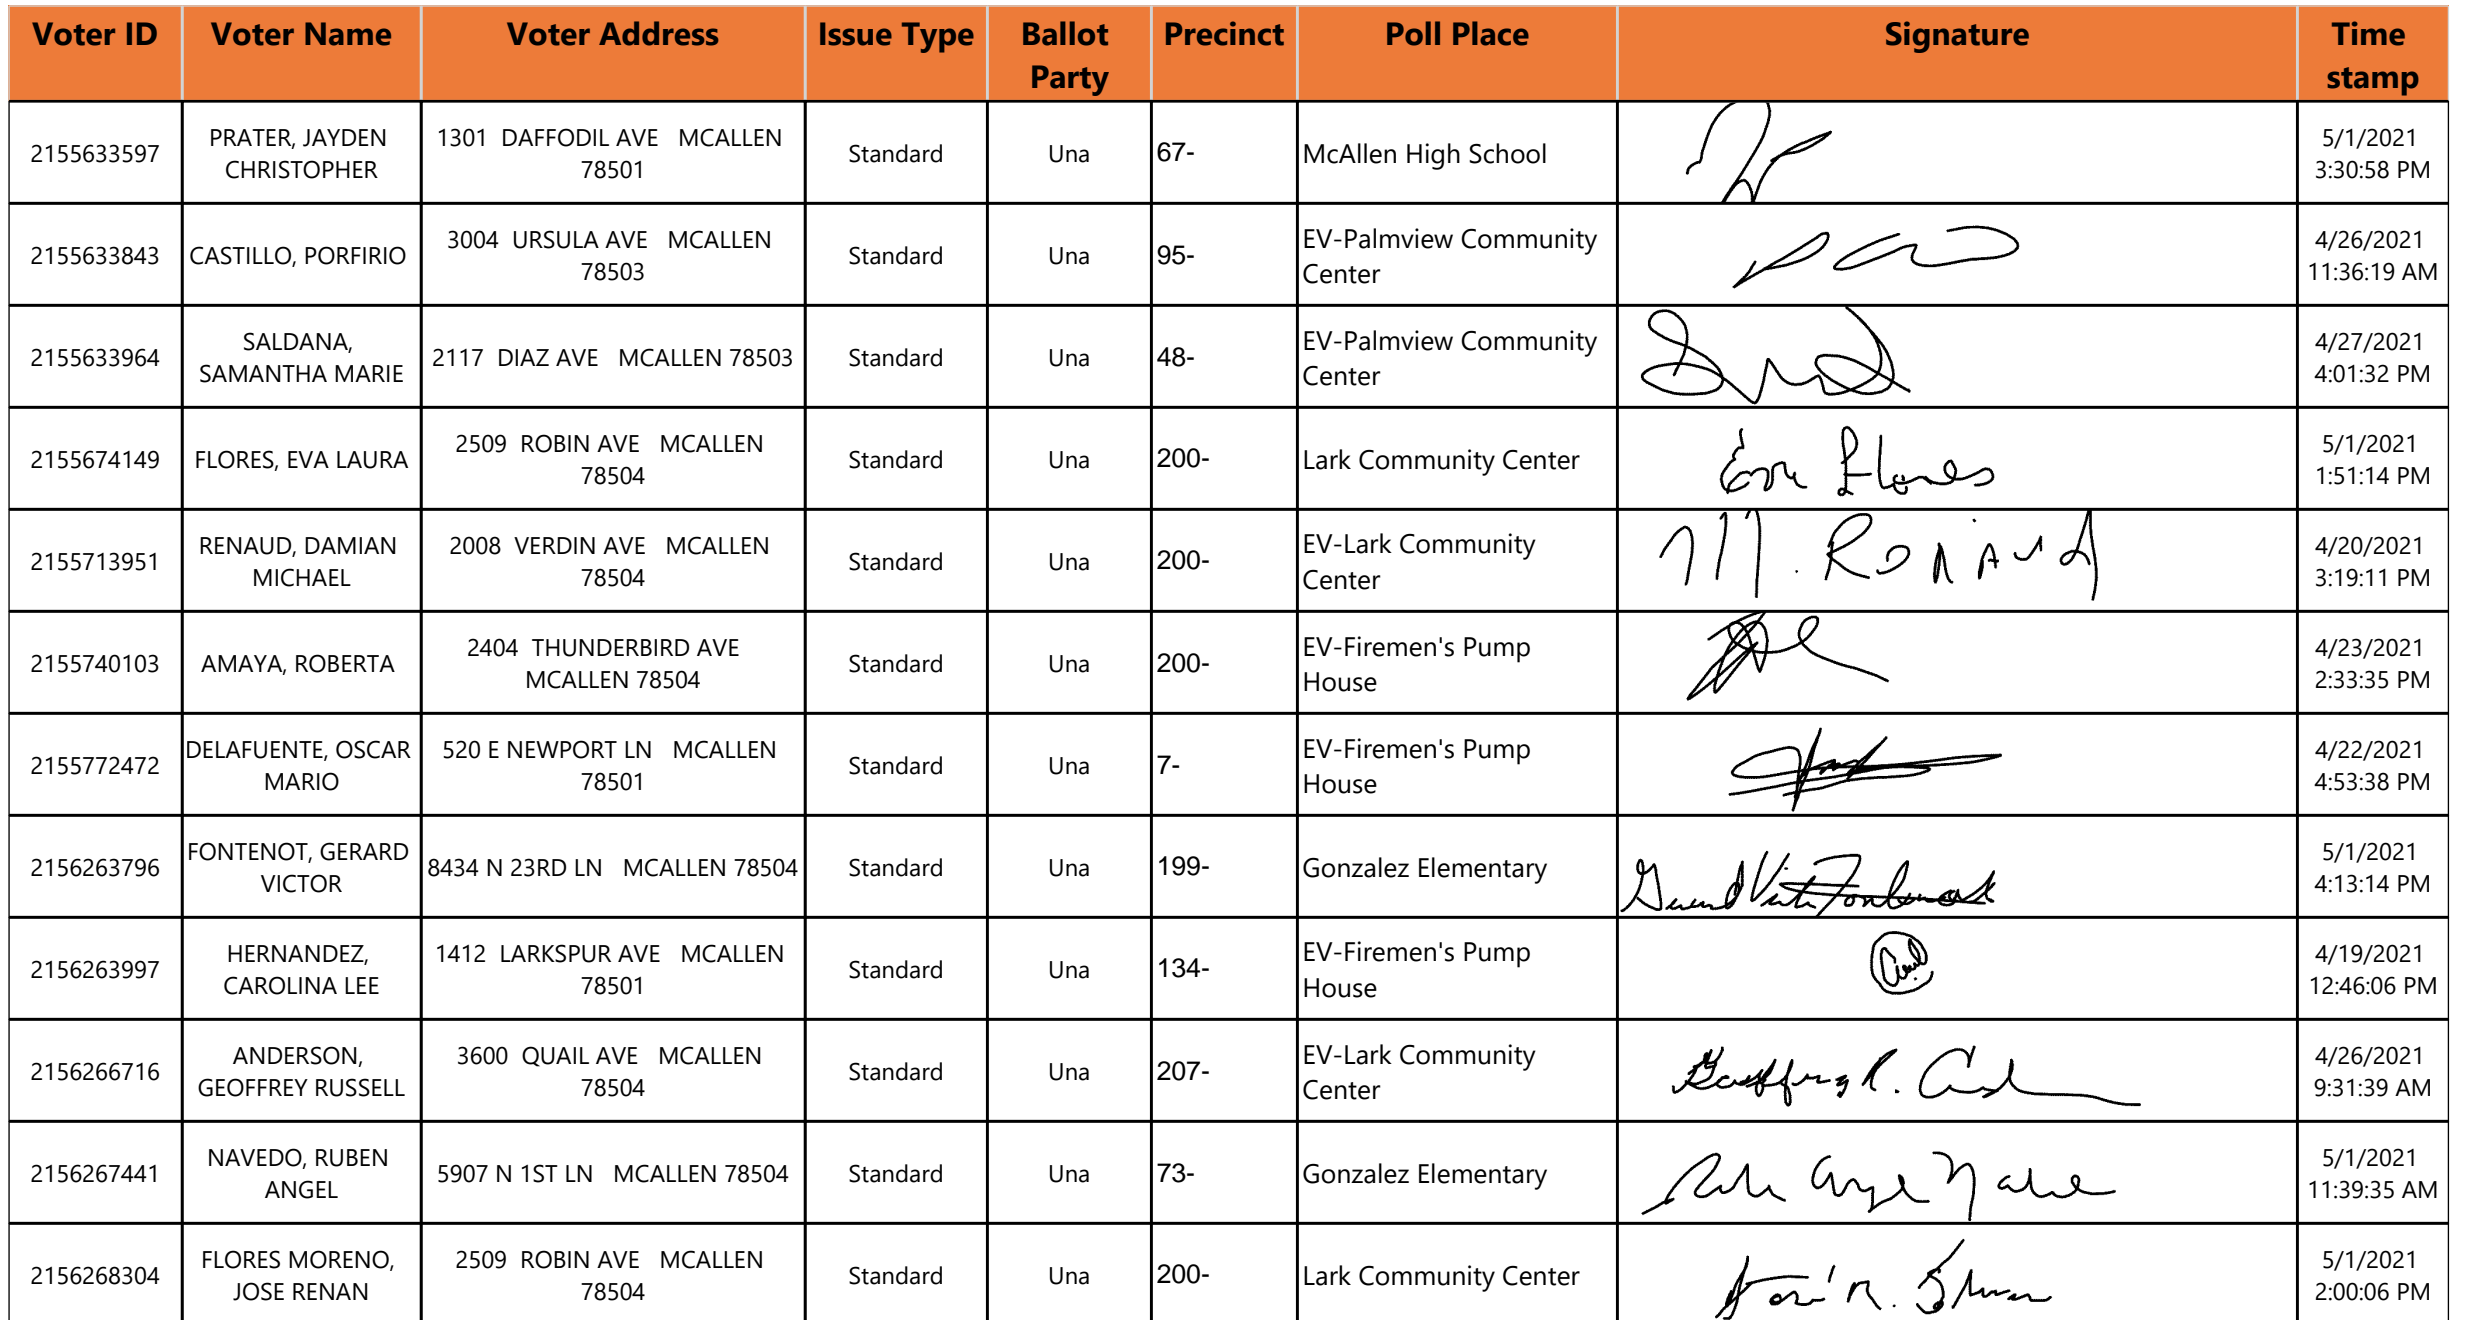 Voter ID Voter Name Voter Address Issue Type Ballot Party Precinct Poll Place Signature Time stamp
2155633597 PRATER, JAYDEN CHRISTOPHER 1301 DAFFODIL AVE MCALLEN 78501 Standard Una 67- McAllen High School 5/1/2021 3:30:58 PM
2155633843 CASTILLO, PORFIRIO 3004 URSULA AVE MCALLEN 78503 Standard Una 95- EV-Palmview Community Center 4/26/2021 11:36:19 AM
2155633964 SALDANA, SAMANTHA MARIE 2117 DIAZ AVE MCALLEN 78503 Standard Una 48- EV-Palmview Community Center 4/27/2021 4:01:32 PM
2155674149 FLORES, EVA LAURA 2509 ROBIN AVE MCALLEN 78504 Standard Una 200- Lark Community Center Eva Flores 5/1/2021 1:51:14 PM
2155713951 RENAUD, DAMIAN MICHAEL 2008 VERDIN AVE MCALLEN 78504 Standard Una 200- EV-Lark Community Center 4/20/2021 3:19:11 PM
2155740103 AMAYA, ROBERTA 2404 THUNDERBIRD AVE MCALLEN 78504 Standard Una 200- EV-Firemen's Pump House 4/23/2021 2:33:35 PM
2155772472 DELAFUENTE, OSCAR MARIO 520 E NEWPORT LN MCALLEN 78501 Standard Una 7- EV-Firemen's Pump House 4/22/2021 4:53:38 PM
2156263796 FONTENOT, GERARD VICTOR 8434 N 23RD LN MCALLEN 78504 Standard Una 199- Gonzalez Elementary 5/1/2021 4:13:14 PM
2156263997 HERNANDEZ, CAROLINA LEE 1412 LARKSPUR AVE MCALLEN 78501 Standard Una 134- EV-Firemen's Pump House 4/19/2021 12:46:06 PM
2156266716 ANDERSON, GEOFFREY RUSSELL 3600 QUAIL AVE MCALLEN 78504 Standard Una 207- EV-Lark Community Center 4/26/2021 9:31:39 AM
2156267441 NAVEDO, RUBEN ANGEL 5907 N 1ST LN MCALLEN 78504 Standard Una 73- Gonzalez Elementary 5/1/2021 11:39:35 AM
2156268304 FLORES MORENO, JOSE RENAN 2509 ROBIN AVE MCALLEN 78504 Standard Una 200- Lark Community Center 5/1/2021 2:00:06 PM